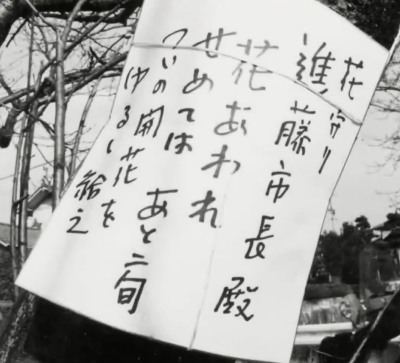 花守り
進藤市長殿
花あわれ
せめてはあと二旬
ついの開花を
ゆるし給え